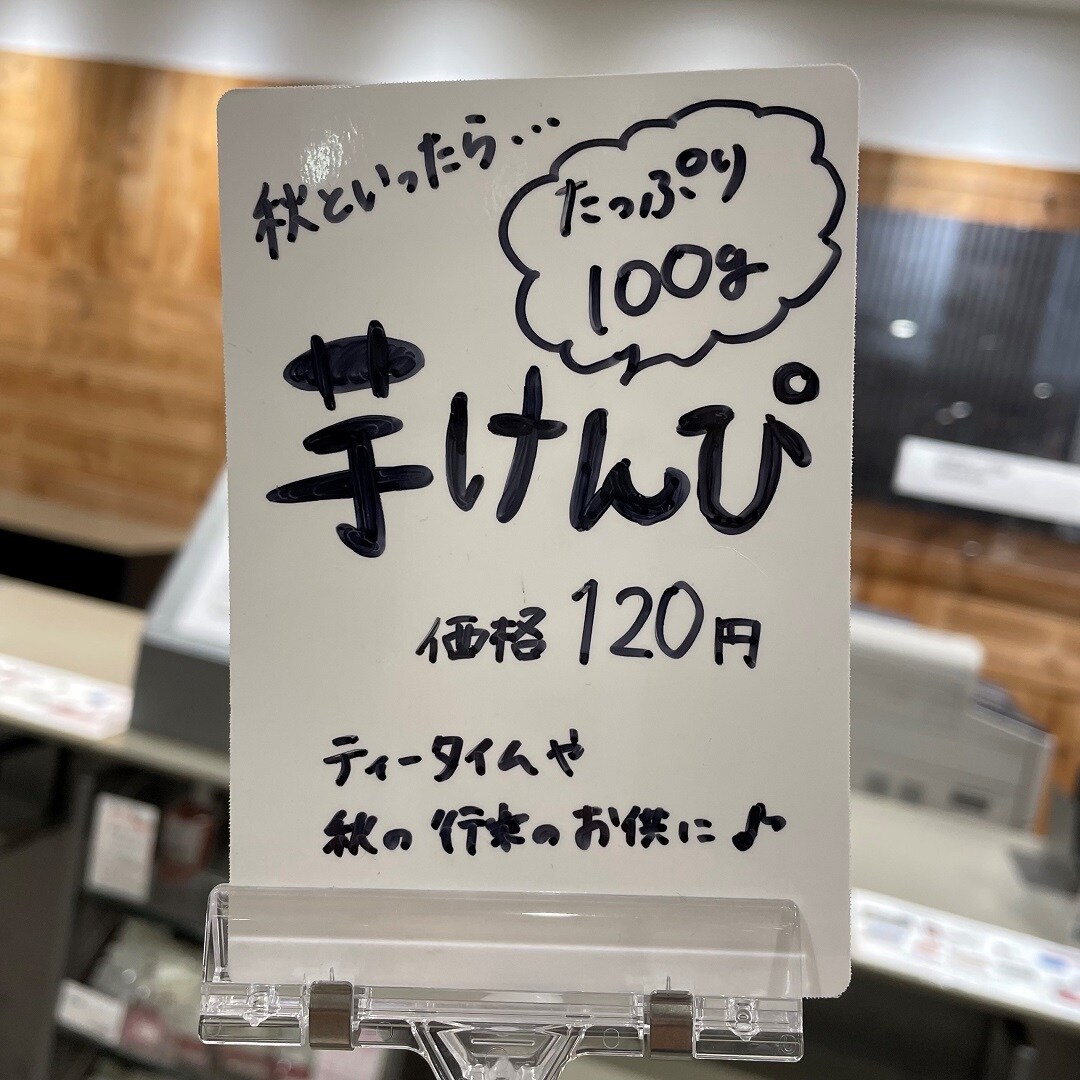 秋といったら…
たっぷり
100g
芋けんぴ
価格 120円
ティータイムや
秋の行楽のお供に♪